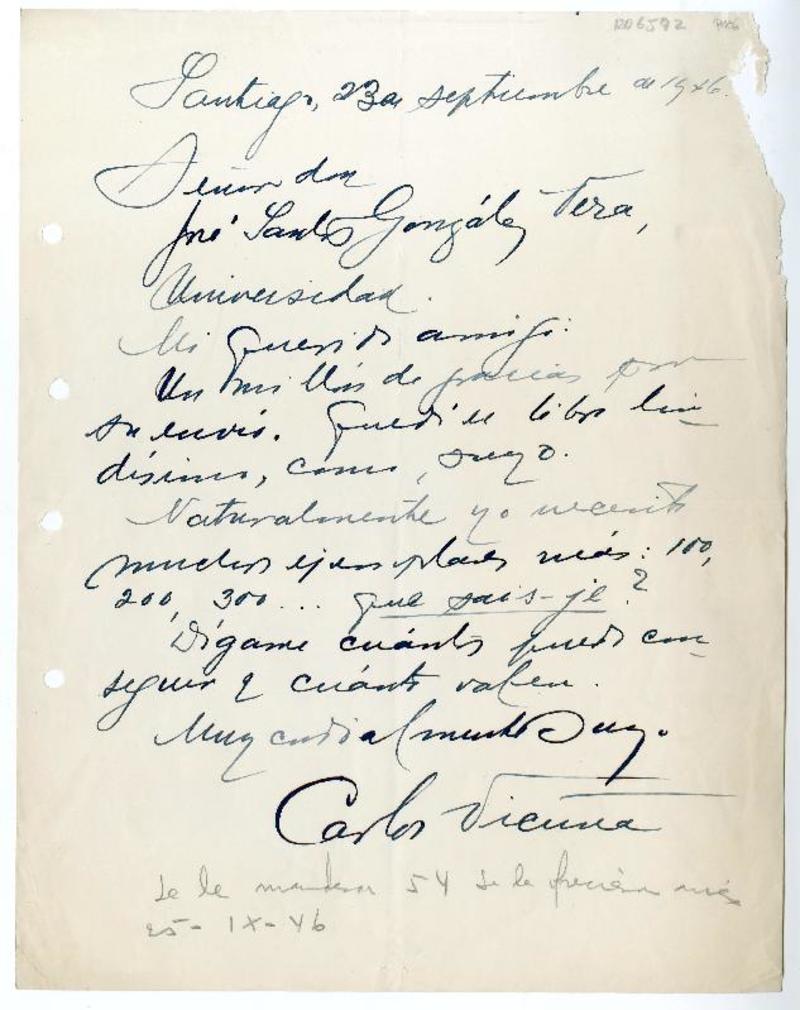 RA6592
Santiago, 23 de septiembre de 1946.
Señor don
José Santos González Vera,
Universidad.
Mi querido amigo:
Un millón de gracias por
su envío. Quedó un libro lin-
dísimo, como suyo.
Naturalmente yo necesito
muchos ejemplares más: 100,
200, 300... que sais-je?
Dígame cuánto puedo con-
seguir y cuánto valen.
Muy cordialmente Suyo.
Carlos Vicuña
Se le mandaron 54 se le más
25-IX-46